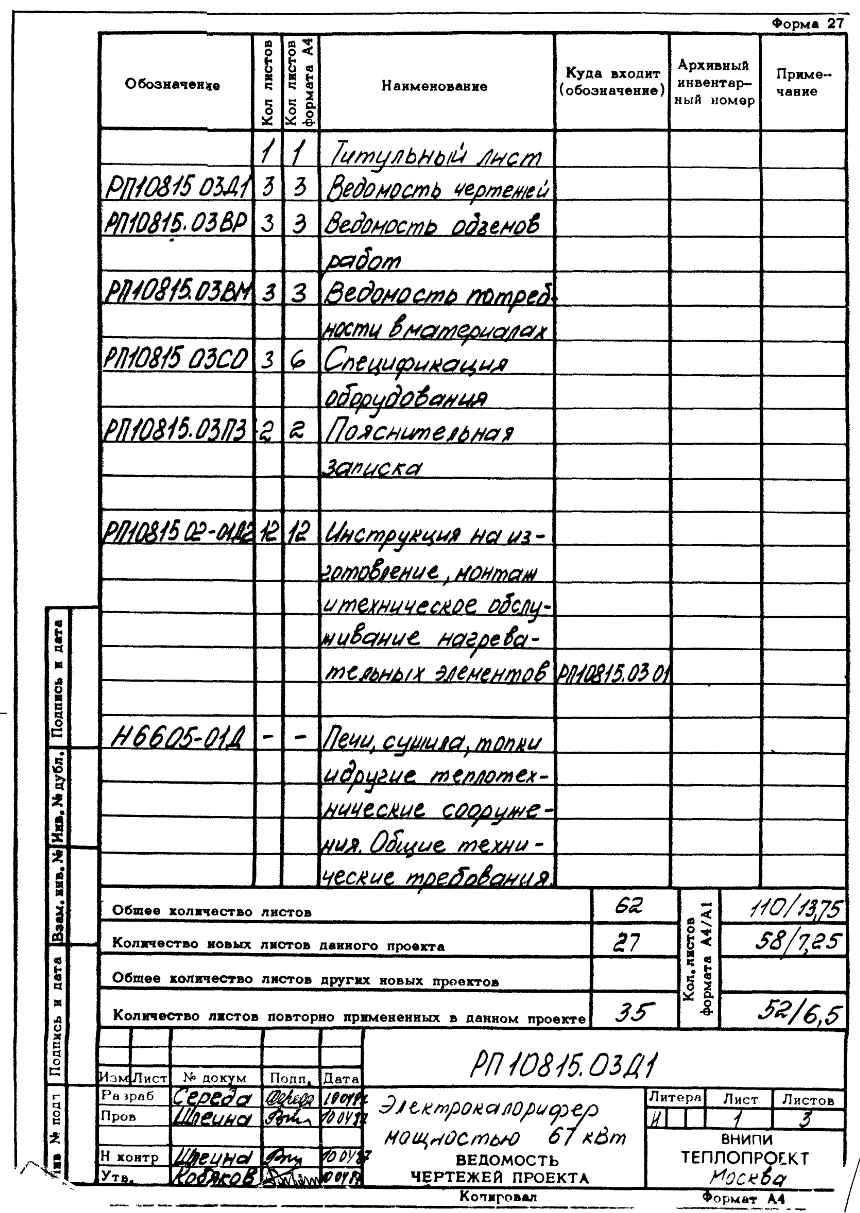 Форма 27
Обозначение Кол листов Кол листов формата А4 Наименование Куда входит (обозначение) Архивный инвентар-ный номер Приме-чание
1 1 Титульный лист
РП10815 03Д1 3 3 Ведомость чертежей
РП10815.03ВР 3 3 Ведомость объемов
работ
РП10815.03ВМ 3 3 Ведомость потреб-
ности в материалах
РП10815 03СО 3 6 Спецификация
оборудования
РП10815.03ПЗ 2 2 Пояснительная
записка
РП10815 02-01Д2 12 12 Инструкция на из-
готовление, монтаж
и техническое обслу-
живание нагрева-
тельных элементов РП10815.03 01
Н6605-01Д - - Печи, сушила, топки
и другие теплотех-
нические сооруже-
ния. Общие техни-
ческие требования.
Общее количество листов 62 110/13,75
Количество новых листов данного проекта 27 58/7,25
Общее количество листов других новых проектов
Количество листов повторно примененных в данном проекте 35 52/6,5
Кол. листов формата А4/А1
Подпись и дата
Инв. № дубл.
Взам. инв. №
Подпись и дата
Инв № подл
РП10815.03Д1
Изм Лист № докум Подп. Дата
Разраб Середа
Пров Шеина
Н контр Шеина
Утв. Кобяков
Электрокалорифер
мощностью 67 кВт
ВЕДОМОСТЬ
ЧЕРТЕЖЕЙ ПРОЕКТА
Литера Лист Листов
И 1 3
ВНИПИ
ТЕПЛОПРОЕКТ
Москва
Копировал Формат А4